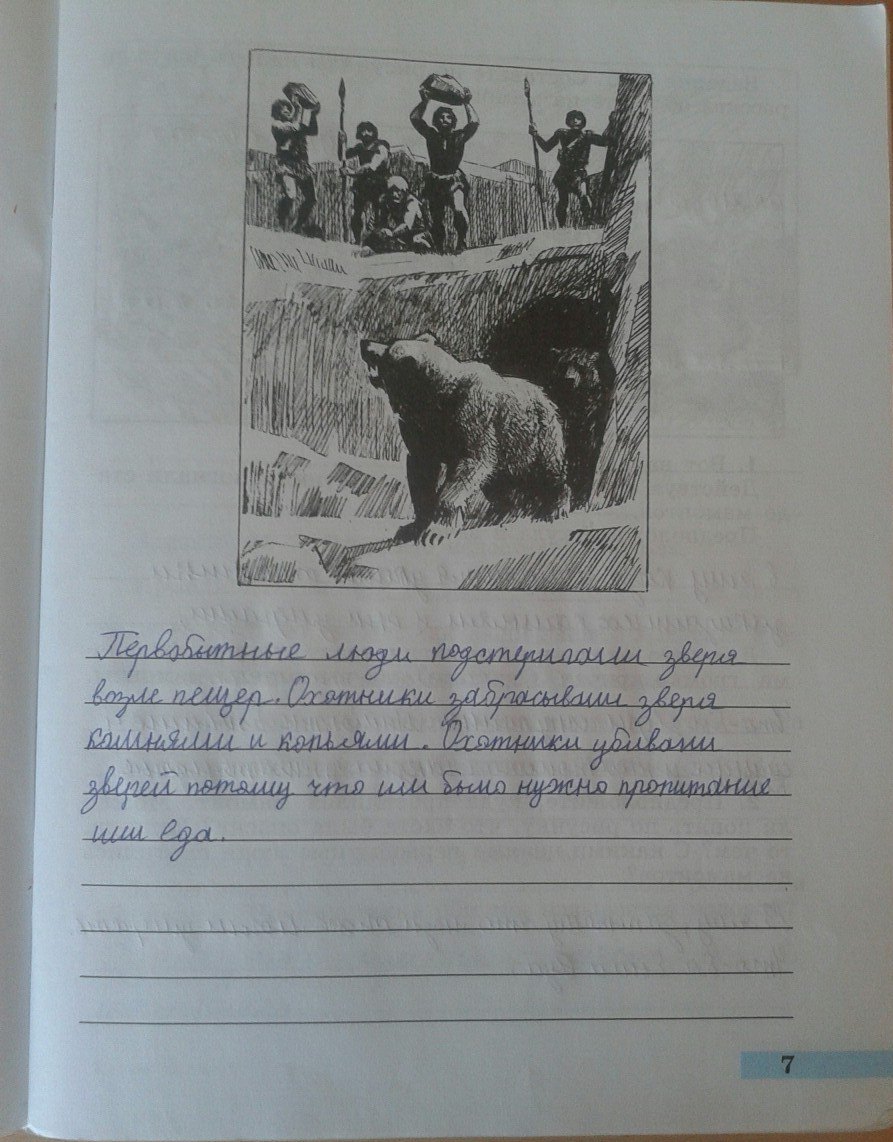 Первобытные люди подстеригали зверя
возле пещер. Охотники забрасывали зверя
камнями и копьями. Охотники убивали
зверей потому что им было нужно пропитание
или еда.
7